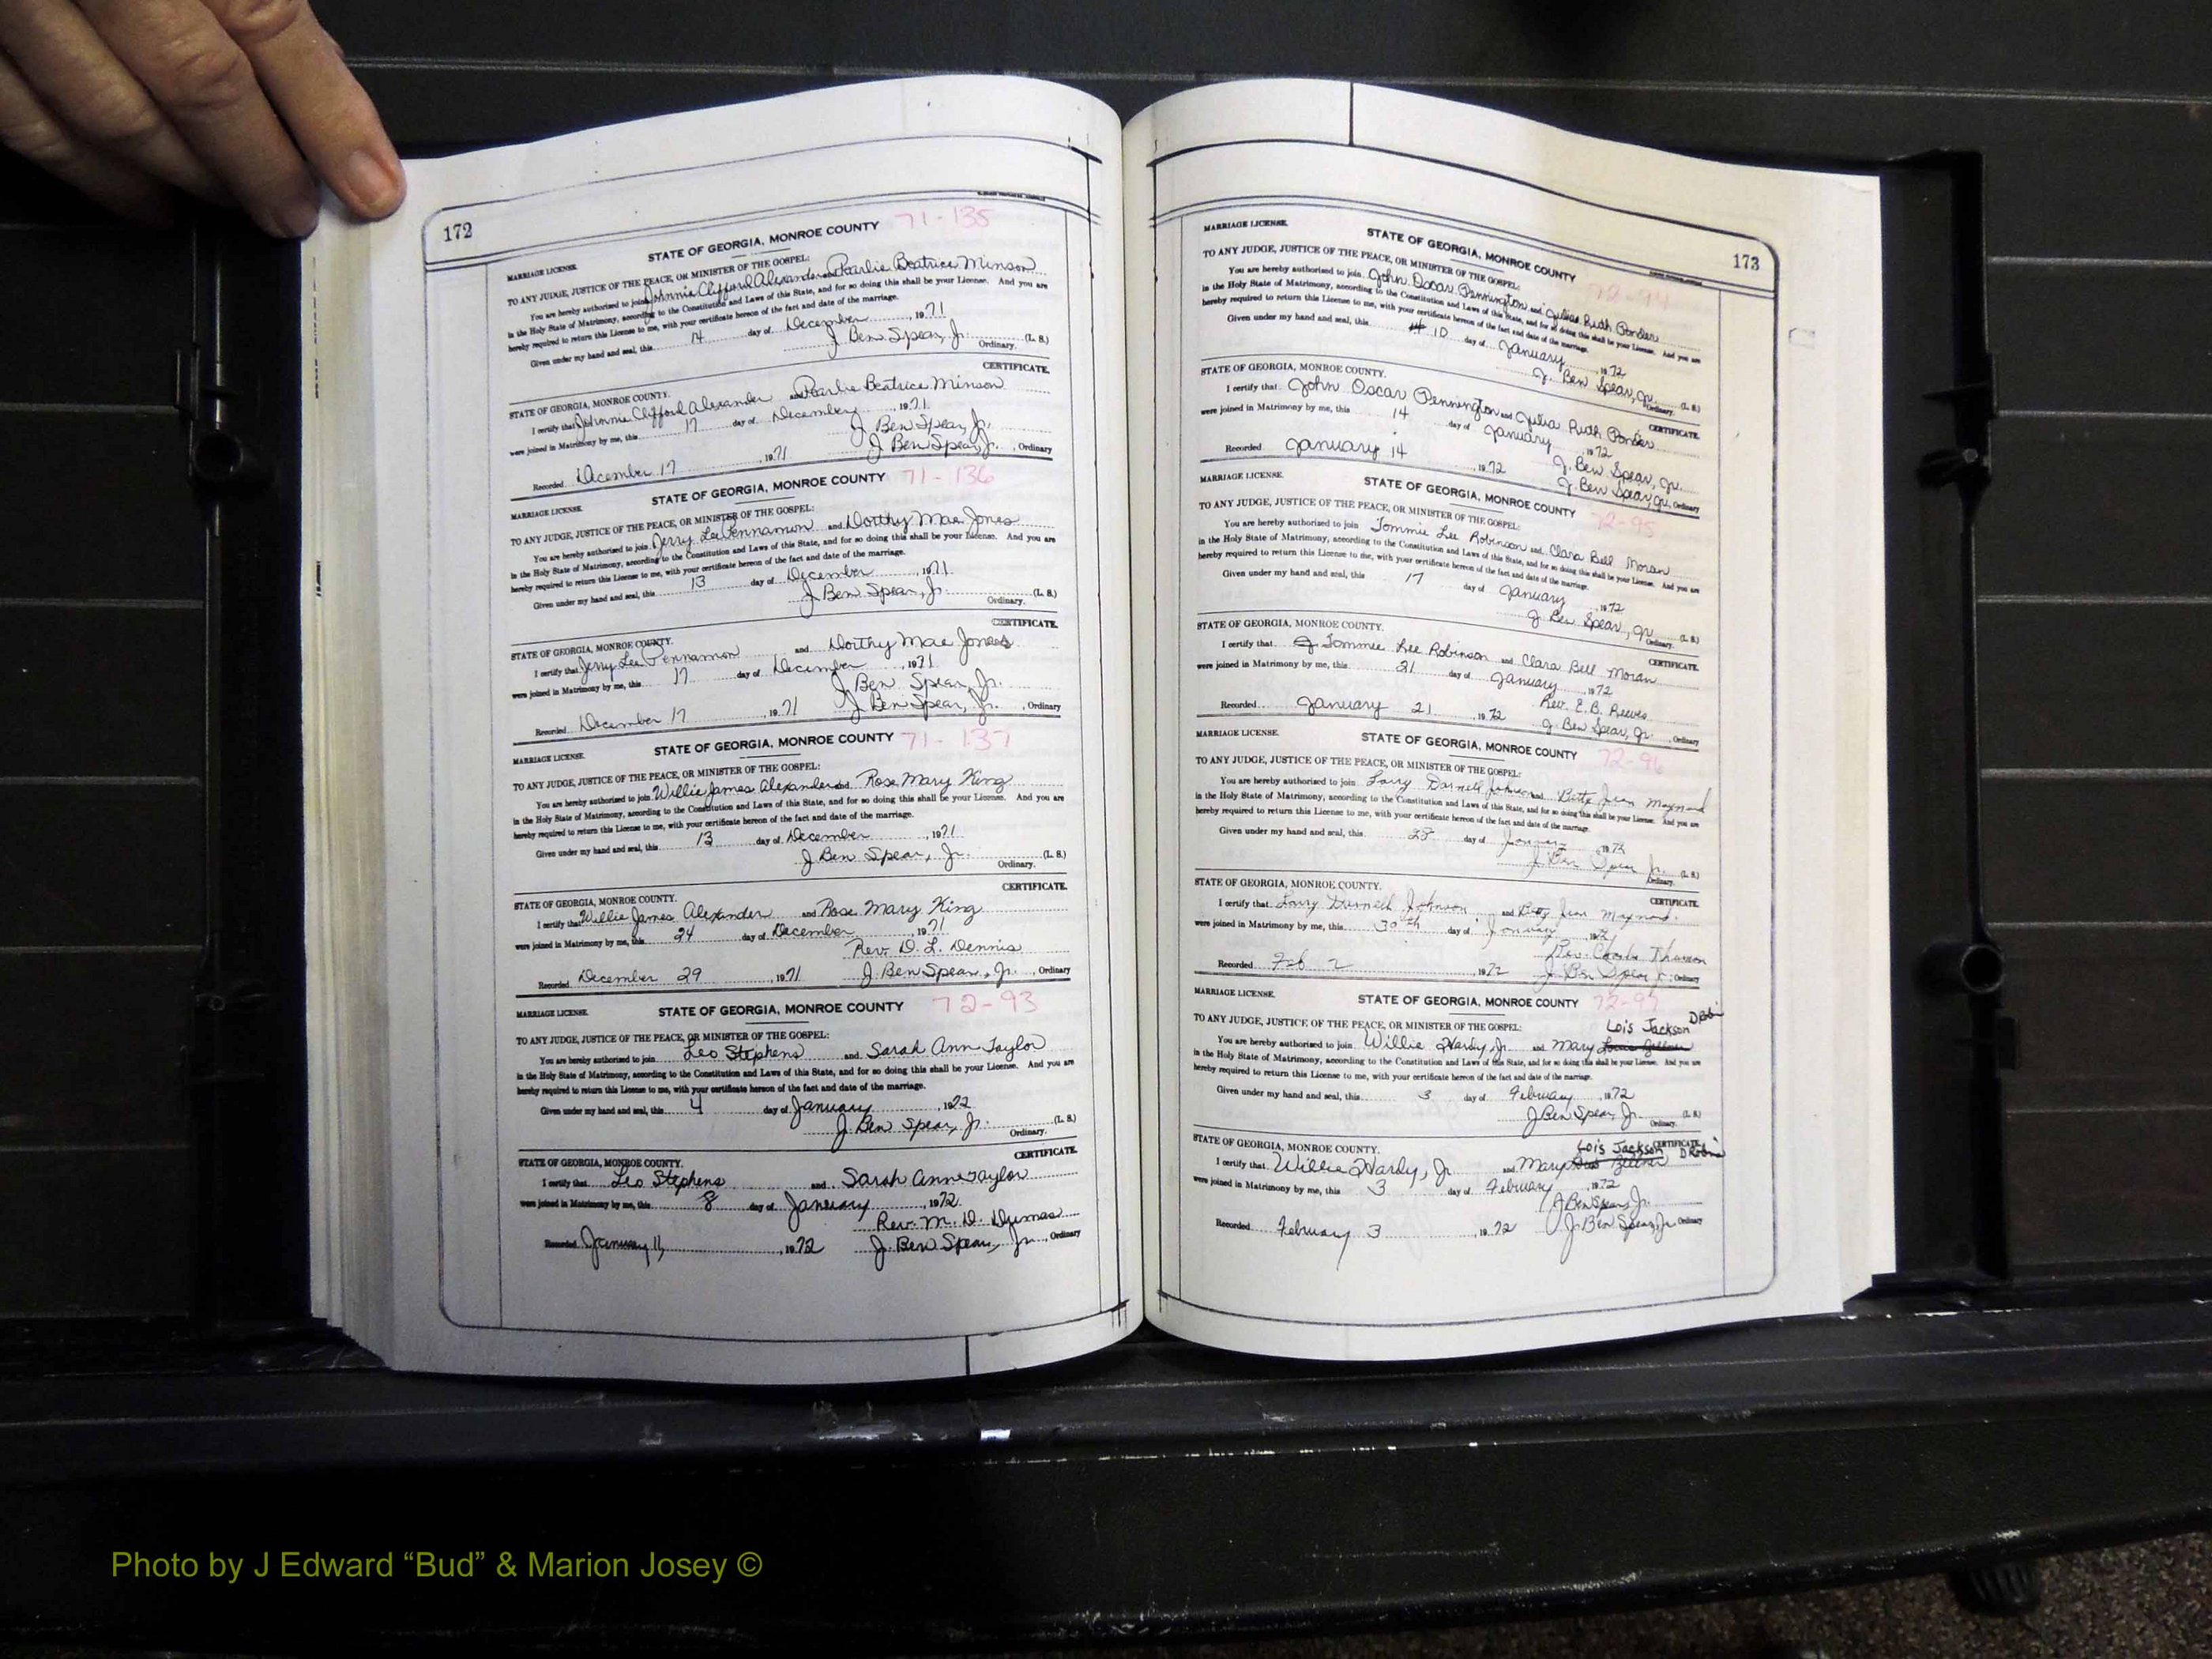 172
71-135
STATE OF GEORGIA, MONROE COUNTY
MARRIAGE LICENSE.
TO ANY JUDGE, JUSTICE OF THE PEACE, OR MINISTER OF THE GOSPEL:
You are hereby authorized to join Johnnie Clifford Alexander and Pearlie Beatrice Minson
in the Holy State of Matrimony, according to the Constitution and Laws of this State, and for so doing this shall be your License. And you are
hereby required to return this License to me, with your certificate hereon of the fact and date of the marriage.
Given under my hand and seal, this 14 day of December, 1971
J Ben Spear, Jr. (L. S.)
Ordinary.
CERTIFICATE.
STATE OF GEORGIA, MONROE COUNTY.
I certify that Johnnie Clifford Alexander and Pearlie Beatrice Minson
were joined in Matrimony by me, this 17 day of December, 1971
J Ben Spear, Jr.
Recorded December 17, 1971 J Ben Spear, Jr., Ordinary
71-136
STATE OF GEORGIA, MONROE COUNTY
MARRIAGE LICENSE.
TO ANY JUDGE, JUSTICE OF THE PEACE, OR MINISTER OF THE GOSPEL:
You are hereby authorized to join Jerry Lee Pennamon and Dorthy Mae Jones
in the Holy State of Matrimony, according to the Constitution and Laws of this State, and for so doing this shall be your License. And you are
hereby required to return this License to me, with your certificate hereon of the fact and date of the marriage.
Given under my hand and seal, this 13 day of December, 1971
J Ben Spear, Jr. (L. S.)
Ordinary.
CERTIFICATE.
STATE OF GEORGIA, MONROE COUNTY.
I certify that Jerry Lee Pennamon and Dorthy Mae Jones
were joined in Matrimony by me, this 17 day of December, 1971
J Ben Spear, Jr.
Recorded December 17, 1971 J Ben Spear, Jr., Ordinary
71-137
STATE OF GEORGIA, MONROE COUNTY
MARRIAGE LICENSE.
TO ANY JUDGE, JUSTICE OF THE PEACE, OR MINISTER OF THE GOSPEL:
You are hereby authorized to join Willie James Alexander and Rose Mary King
in the Holy State of Matrimony, according to the Constitution and Laws of this State, and for so doing this shall be your License. And you are
hereby required to return this License to me, with your certificate hereon of the fact and date of the marriage.
Given under my hand and seal, this 13 day of December, 1971
J Ben Spear, Jr. (L. S.)
Ordinary.
CERTIFICATE.
STATE OF GEORGIA, MONROE COUNTY.
I certify that Willie James Alexander and Rose Mary King
were joined in Matrimony by me, this 24 day of December, 1971
Rev. D. L. Dennis
Recorded December 29, 1971 J. Ben Spear, Jr., Ordinary
72-93
MARRIAGE LICENSE. STATE OF GEORGIA, MONROE COUNTY
TO ANY JUDGE, JUSTICE OF THE PEACE, OR MINISTER OF THE GOSPEL:
You are hereby authorized to join Leo Stephens and Sarah Ann Taylor
in the Holy State of Matrimony, according to the Constitution and Laws of this State, and for so doing this shall be your License. And you are
hereby required to return this License to me, with your certificate hereon of the fact and date of the marriage.
Given under my hand and seal, this 4 day of January, 1972
J. Ben Spear, Jr. (L. S.)
Ordinary.
CERTIFICATE.
STATE OF GEORGIA, MONROE COUNTY.
I certify that Leo Stephens and Sarah Anne Taylor
were joined in Matrimony by me, this 8 day of January, 1972
Rev. M. D. Dumas
Recorded January 11, 1972 J. Ben Spear, Jr., Ordinary
173
MARRIAGE LICENSE. STATE OF GEORGIA, MONROE COUNTY
72-94
TO ANY JUDGE, JUSTICE OF THE PEACE, OR MINISTER OF THE GOSPEL:
You are hereby authorized to join John Oscar Pennington and Julia Ruth Ponder
in the Holy State of Matrimony, according to the Constitution and Laws of this State, and for so doing this shall be your License. And you are
hereby required to return this License to me, with your certificate hereon of the fact and date of the marriage.
Given under my hand and seal, this 10 day of January, 1972
J. Ben Spear, Jr. (L. S.)
Ordinary.
STATE OF GEORGIA, MONROE COUNTY.
CERTIFICATE.
I certify that John Oscar Pennington and Julia Ruth Ponder
were joined in Matrimony by me, this 14 day of January, 1972
J. Ben Spear, Jr.
Recorded January 14, 1972 J. Ben Spear, Jr., Ordinary
MARRIAGE LICENSE. STATE OF GEORGIA, MONROE COUNTY
72-95
TO ANY JUDGE, JUSTICE OF THE PEACE, OR MINISTER OF THE GOSPEL:
You are hereby authorized to join Tommie Lee Robinson and Clara Bell Moran
in the Holy State of Matrimony, according to the Constitution and Laws of this State, and for so doing this shall be your License. And you are
hereby required to return this License to me, with your certificate hereon of the fact and date of the marriage.
Given under my hand and seal, this 17 day of January, 1972
J. Ben Spear, Jr. (L. S.)
Ordinary.
STATE OF GEORGIA, MONROE COUNTY.
CERTIFICATE.
I certify that Tommie Lee Robinson and Clara Bell Moran
were joined in Matrimony by me, this 21 day of January, 1972
Rev. E. B. Reeves
Recorded January 21, 1972 J. Ben Spear, Jr., Ordinary
MARRIAGE LICENSE. STATE OF GEORGIA, MONROE COUNTY
72-96
TO ANY JUDGE, JUSTICE OF THE PEACE, OR MINISTER OF THE GOSPEL:
You are hereby authorized to join Larry Darnell Johnson and Betty Jean Maynard
in the Holy State of Matrimony, according to the Constitution and Laws of this State, and for so doing this shall be your License. And you are
hereby required to return this License to me, with your certificate hereon of the fact and date of the marriage.
Given under my hand and seal, this 28 day of January, 1972
J. Ben Spear Jr. (L. S.)
Ordinary.
STATE OF GEORGIA, MONROE COUNTY.
CERTIFICATE.
I certify that Larry Darnell Johnson and Betty Jean Maynard
were joined in Matrimony by me, this 30th day of January, 1972
Rev. Charles
Recorded Feb 2, 1972 J. Ben Spear Jr. Ordinary
MARRIAGE LICENSE. STATE OF GEORGIA, MONROE COUNTY 72-97
TO ANY JUDGE, JUSTICE OF THE PEACE, OR MINISTER OF THE GOSPEL: Lois Jackson
You are hereby authorized to join Willie Hardy, Jr. and Mary
in the Holy State of Matrimony, according to the Constitution and Laws of this State, and for so doing this shall be your License. And you are
hereby required to return this License to me, with your certificate hereon of the fact and date of the marriage.
Given under my hand and seal, this 3 day of February, 1972
J Ben Spear, Jr. (L. S.)
Ordinary.
STATE OF GEORGIA, MONROE COUNTY. Lois Jackson CERTIFICATE.
I certify that Willie Hardy, Jr and Mary
were joined in Matrimony by me, this 3 day of February, 1972
J Ben Spear, Jr.
Recorded February 3, 1972 J. Ben Spear, Jr. Ordinary
Photo by J Edward “Bud” & Marion Josey ©